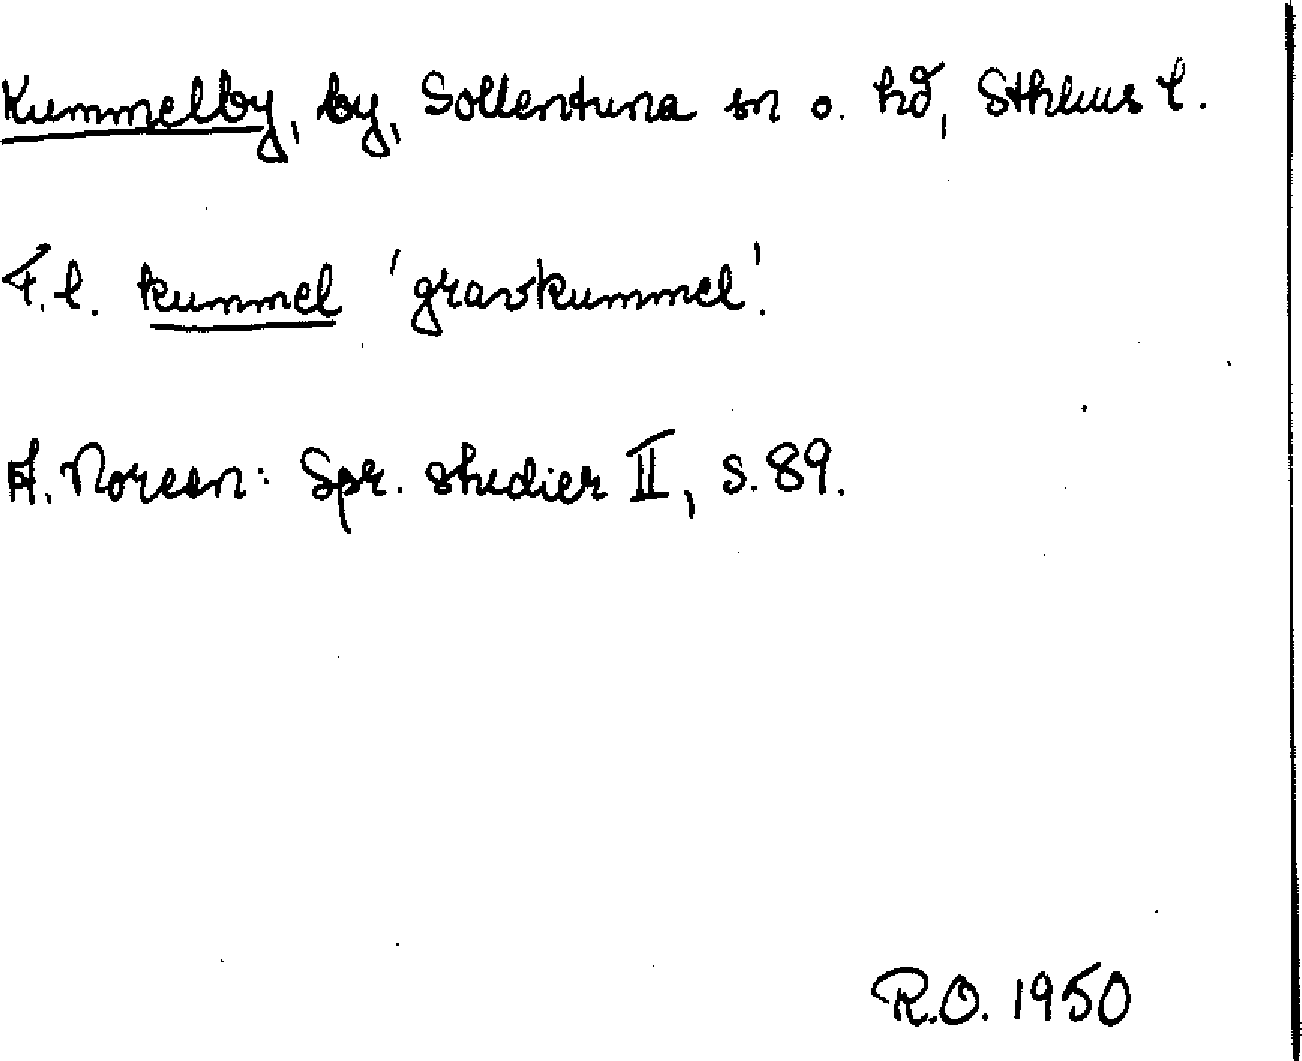 Kummelby, by, Sollentuna sn o. hd, Sthlms l.
F.l. kummel 'gravkummel'.
A. Noreen: Spr. studier II, s. 89.
R.O. 1950